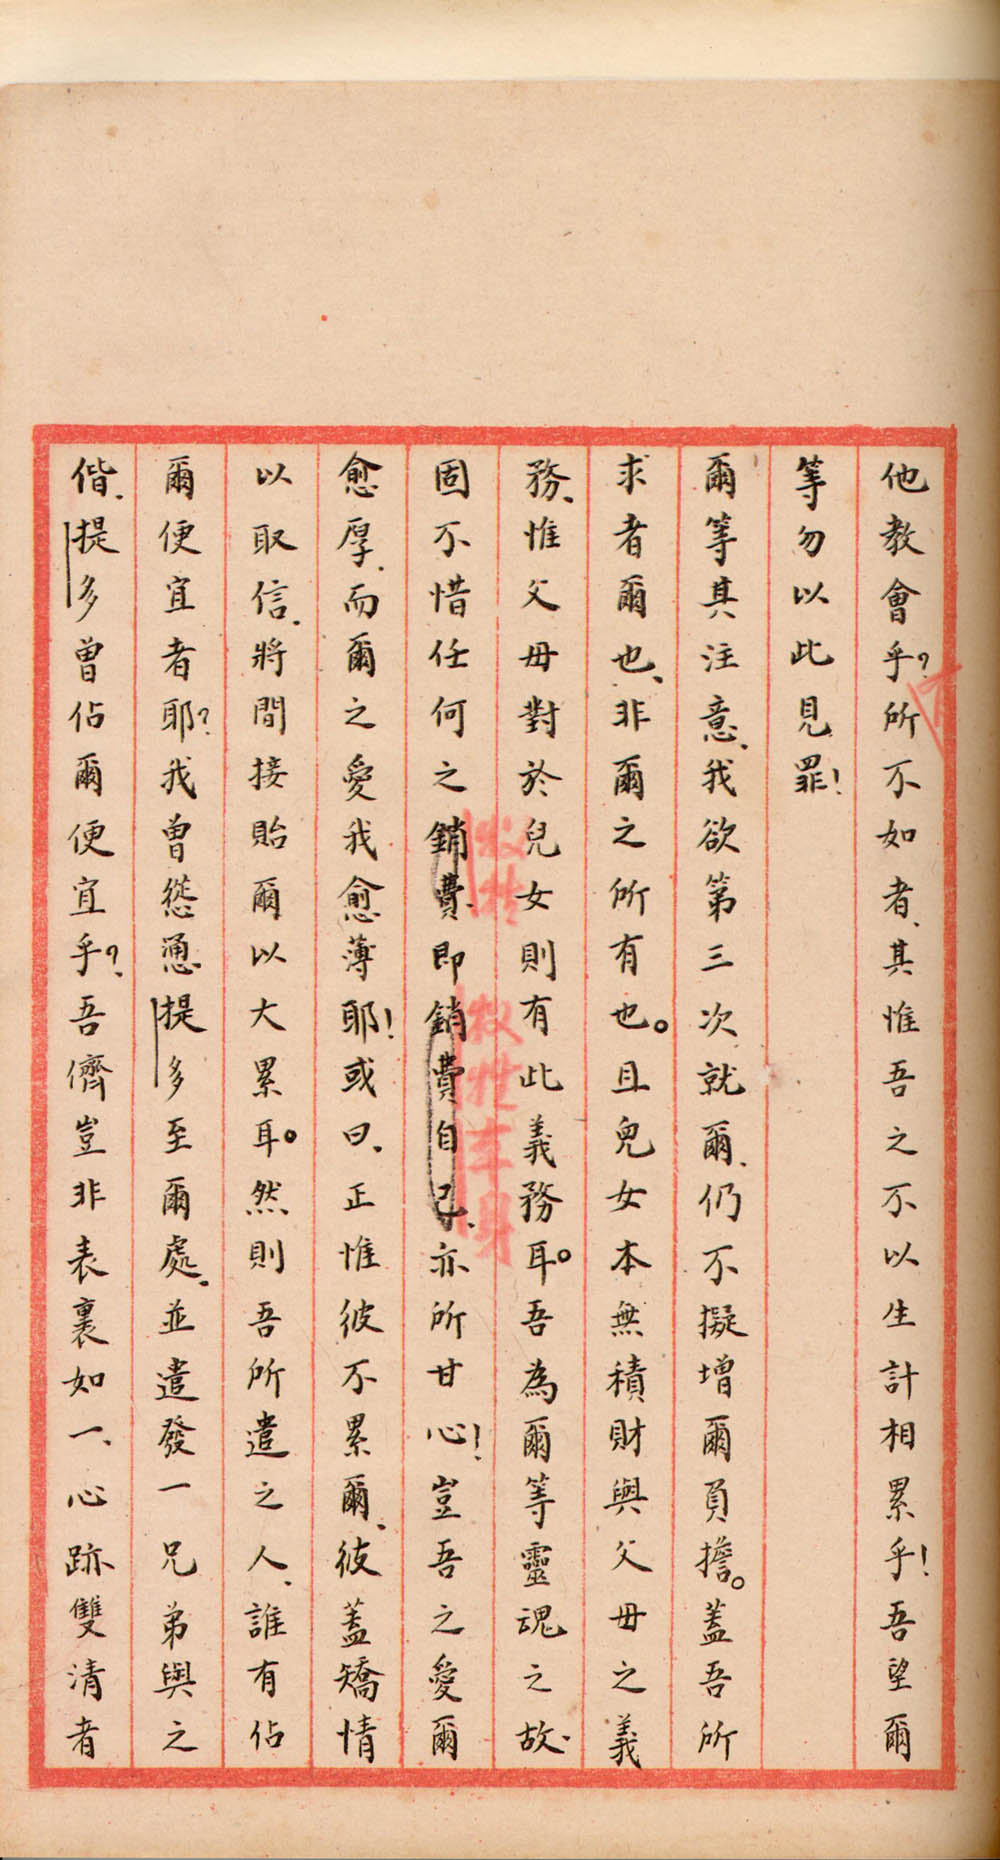 他教會乎?所不如者、其惟吾之不以生計相累乎!吾望爾
等勿以此見罪!
爾等其注意、我欲第三次就爾、仍不擬增爾負擔。蓋吾所
求者爾也、非爾之所有也。且兒女本無積財與父母之義
務、惟父母對於兒女則有此義務耳。吾為爾等靈魂之故、
固不惜任何之銷費、即銷費自己、亦所甘心!豈吾之愛爾
犧牲
犧牲本身
愈厚、而爾之愛我愈薄耶!或曰、正惟彼不累爾、彼蓋矯情
以取信、將間接貽爾以大累耳。然則吾所遣之人、誰有佔
爾便宜者耶?我曾慫慂提多至爾處、並遣發一兄弟與之
偕、提多曾佔爾便宜乎?吾儕豈非表裏如一、心跡雙清者